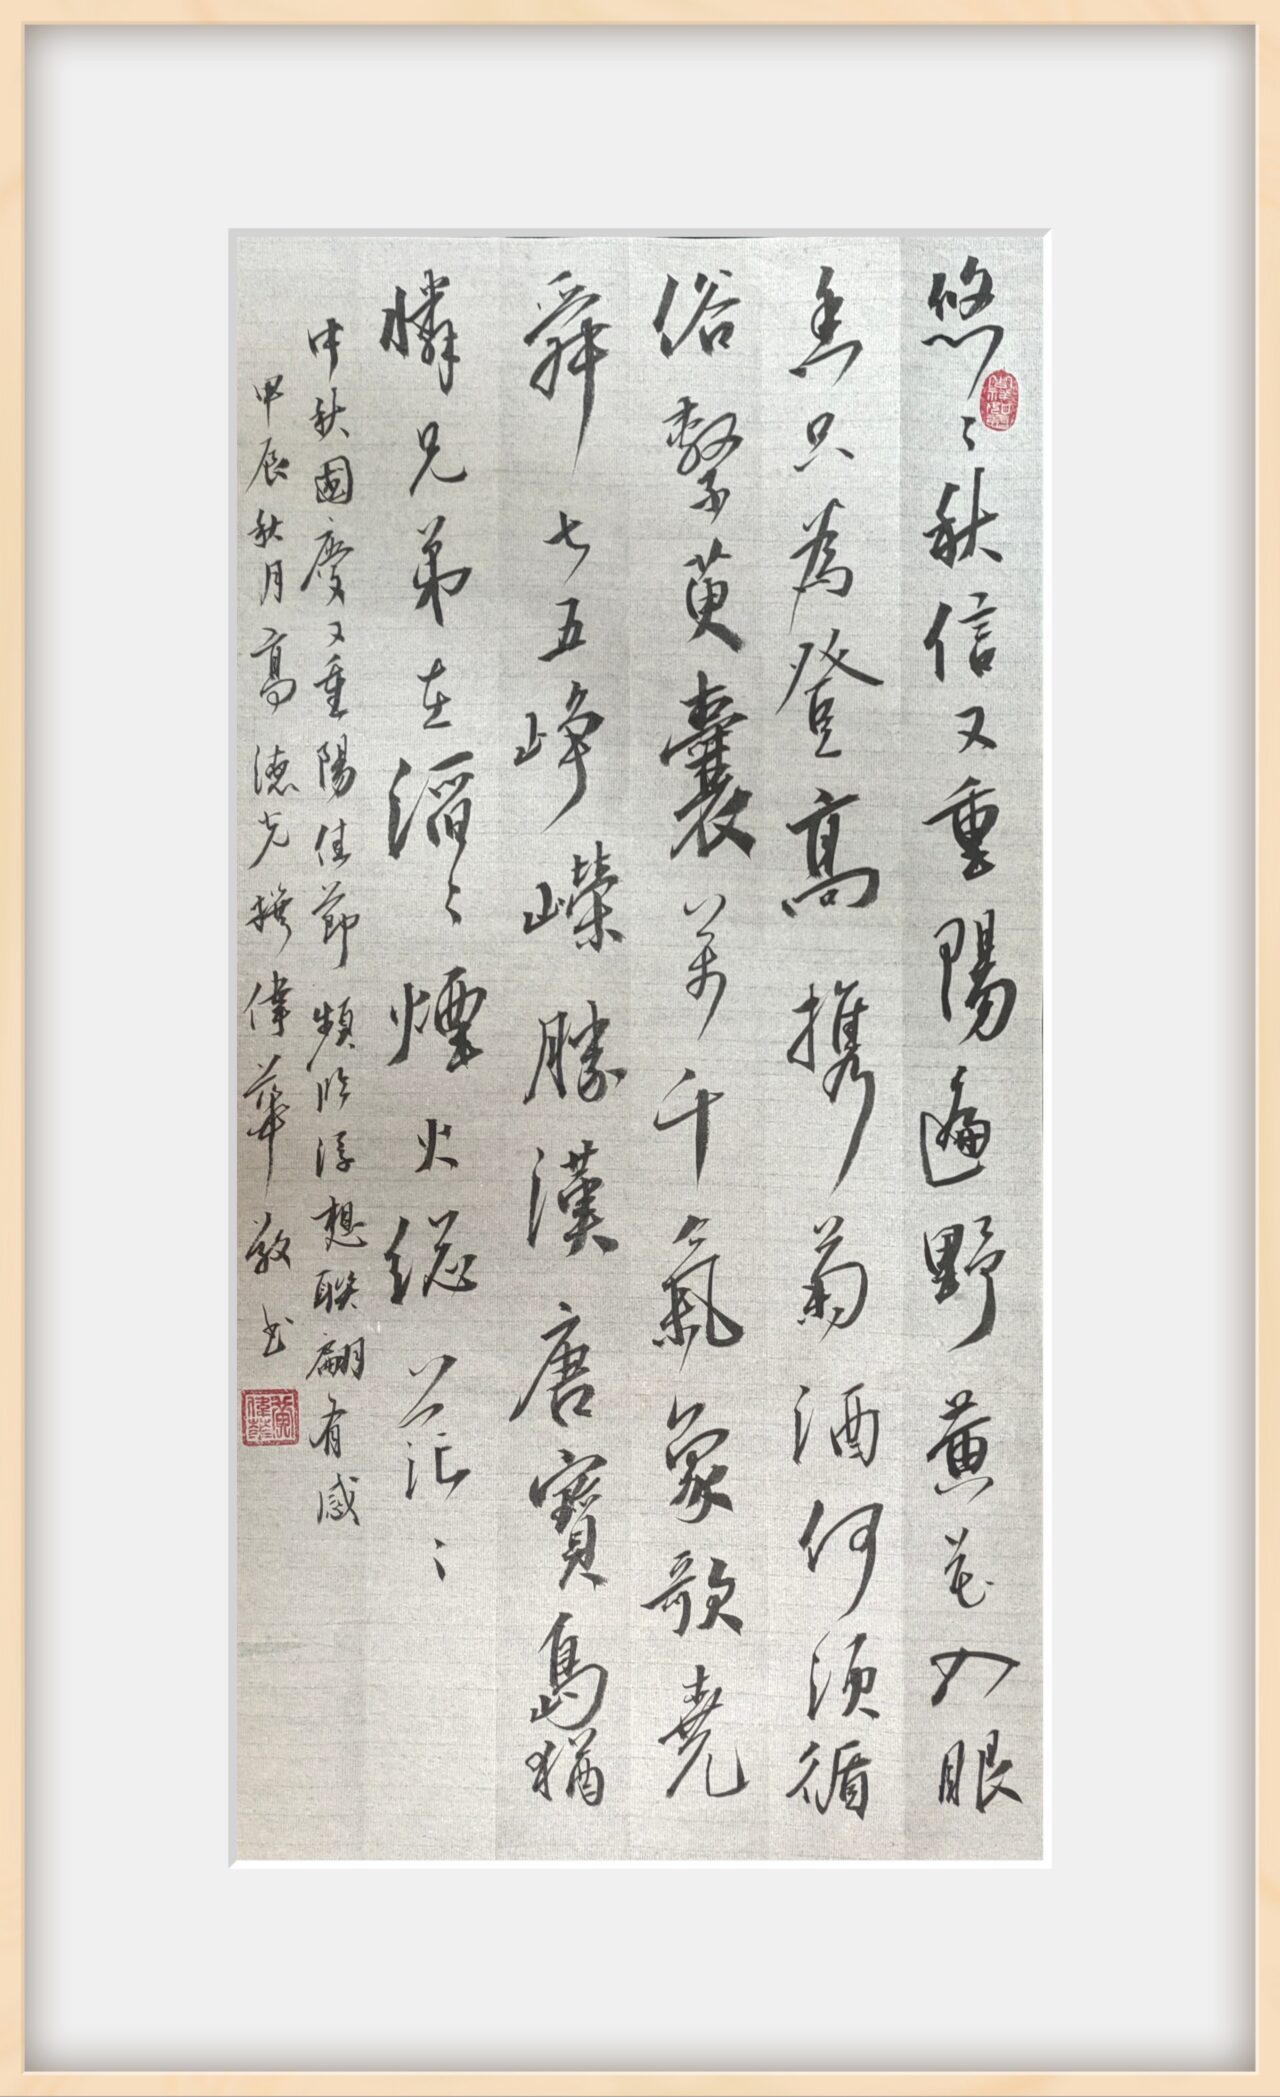 悠〻秋信又重陽遍野黄花入眼
香只為登高携菊酒何須循
俗繫萸囊萬千氣象歌堯
舜七五崢嶸勝漢唐寶島猶
憐兄弟在滔〻煙火総茫〻
中秋國慶又重陽佳節頻臨浮想聯翩有感
甲辰秋月高德光撰偉華敬书
黄偉華